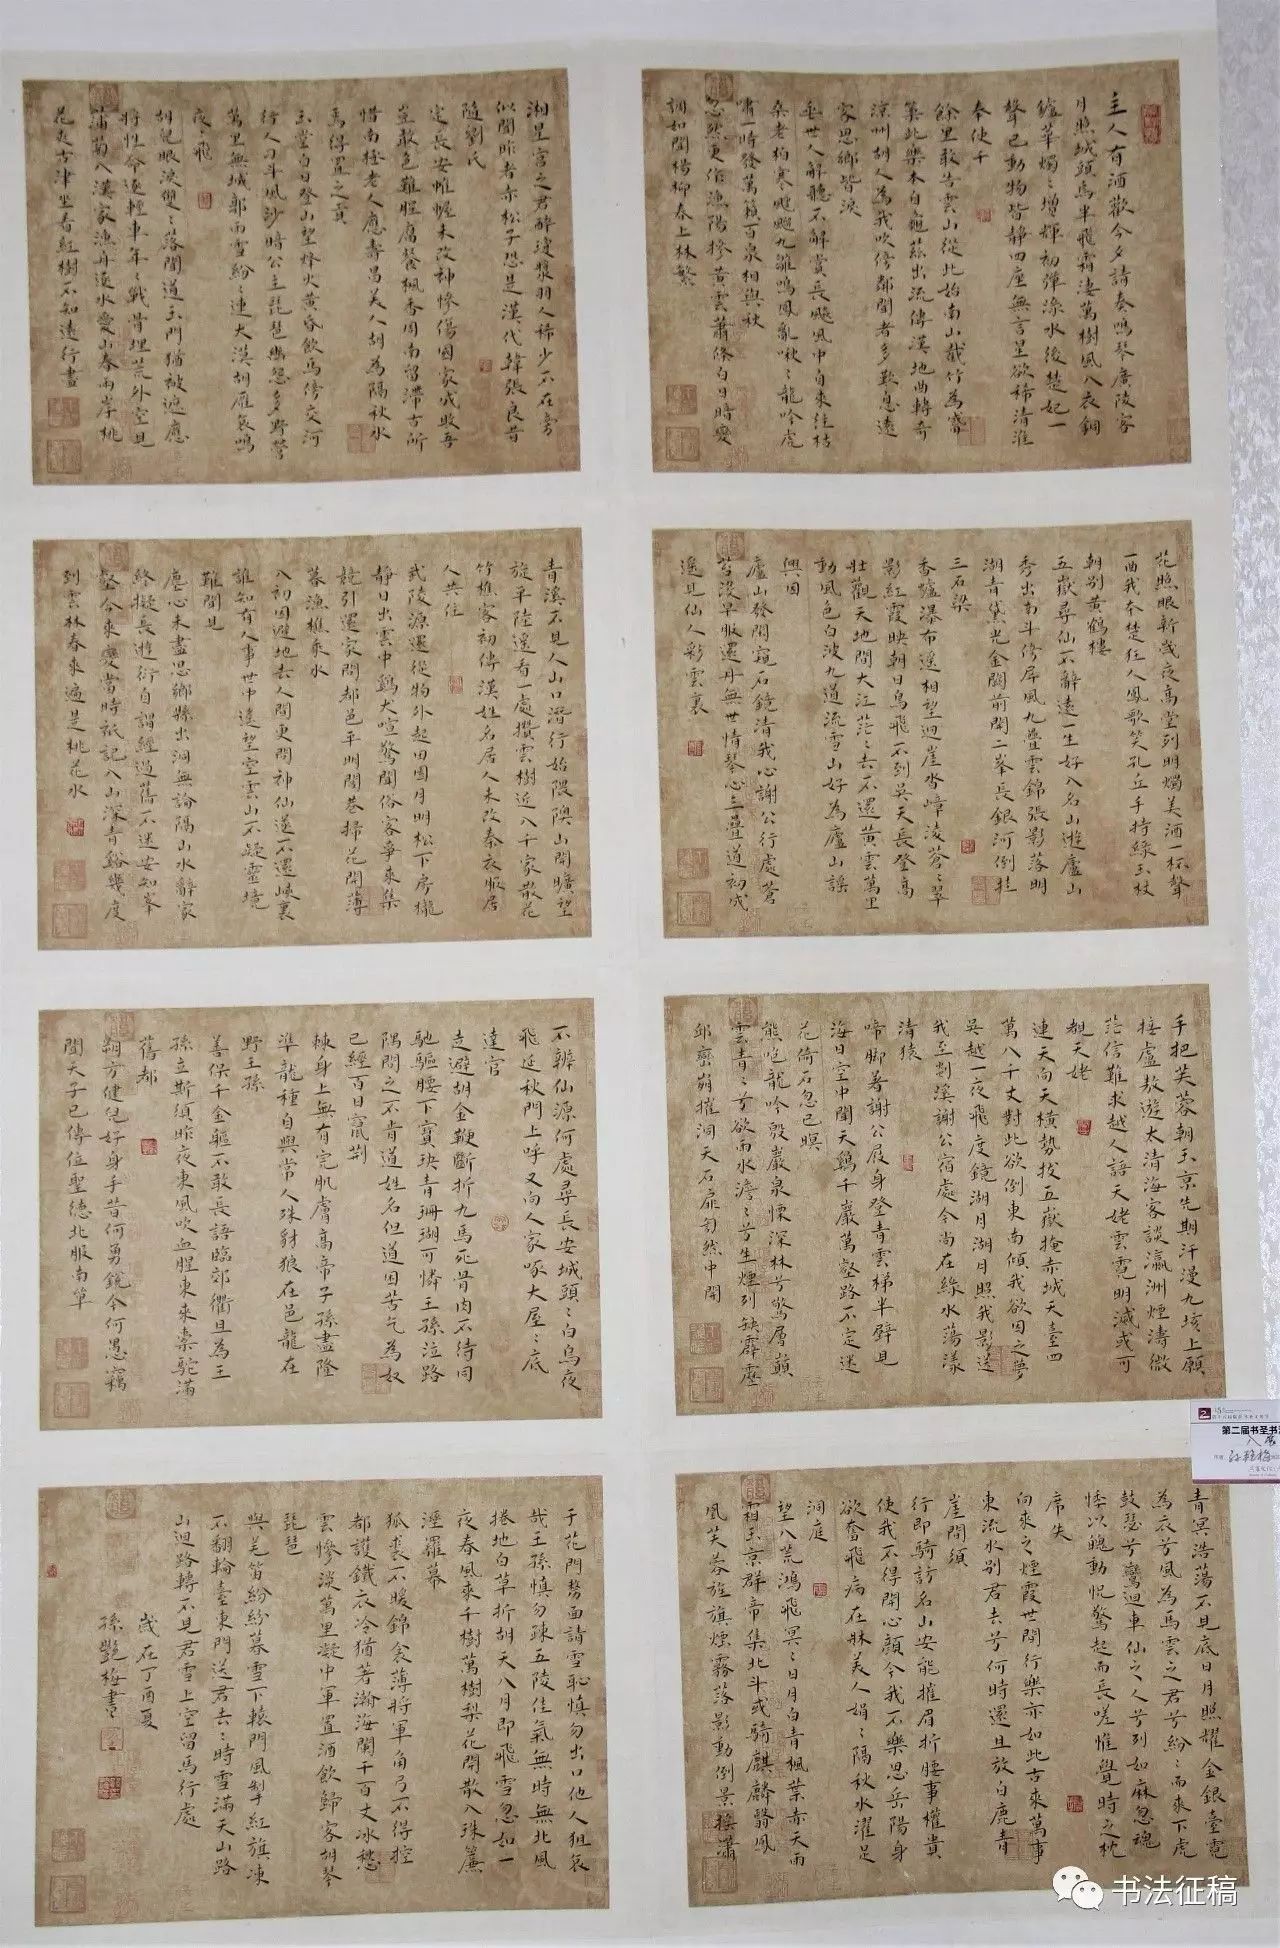 主人有酒歡今夕請奏鳴琴廣陵客
月照城頭烏半飛霜淒萬樹風入衣銅
鑪華燭〻增輝初彈淥水後楚妃一
聲已動物皆静四座無言星欲稀清淮
奉使千
餘里敢告雲山從此始南山截竹為觱
篥此樂本自龜茲出流傳漢地曲轉奇
涼州胡人為我吹傍鄰聞者多歎息遠
客思鄉皆淚
垂世人解聽不解賞長飈風中自來往枯
桑老柏寒颼飀九雛鳴鳳亂啾〻龍吟虎
嘯一時發萬籟百泉相與秋
忽然更作漁陽摻黃雲蕭條白日暗變
調如聞楊柳春上林繁
花照眼新歲夜高堂列明燭美酒一杯聲
一曲我本楚狂人鳳歌笑孔丘手持綠玉杖
朝別黃鶴樓
五嶽尋仙不辭遠一生好入名山遊廬山
秀出南斗傍屏風九疊雲錦張影落明
湖青黛光金闕前開二峯長銀河倒挂
三石梁
香爐瀑布遥相望迴崖沓嶂淩蒼〻翠
影紅霞映朝日鳥飛不到吳天長登高
壯觀天地間大江茫〻去不還黃雲萬里
動風色白波九道流雪山好為廬山謠
興因
廬山發閑窺石鏡清我心謝公行處蒼
苔沒早服還丹無世情琴心三疊道初成
遥見仙人彩雲裏
手把芙蓉朝玉京先期汗漫九垓上願
接盧敖遊太清海客談瀛洲煙濤微
茫信難求越人語天姥雲霓明滅或可
覩天姥
連天向天橫勢拔五嶽掩赤城天臺四
萬八千丈對此欲倒東南傾我欲因之夢
吳越一夜飛度鏡湖月湖月照我影送
我至剡溪謝公宿處今尚在綠水蕩漾
清猿
啼脚著謝公屐身登青雲梯半壁見
海日空中聞天鷄千巖萬壑路不定迷
花倚石忽已暝
熊咆龍吟殷巖泉慄深林兮驚層巔
雲青〻兮欲雨水澹〻兮生煙列缺霹靂
邱巒崩摧洞天石扉訇然中開
青冥浩蕩不見底日月照耀金銀臺霓
為衣兮風為馬雲之君兮紛〻而來下虎
鼓瑟兮鸞迴車仙之人兮列如麻忽魂
悸以魄動怳驚起而長嗟惟覺時之枕
席失
向來之煙霞世間行樂亦如此古來萬事
東流水別君去兮何時還且放白鹿青
崖間須
行即騎訪名山安能摧眉折腰事權貴
使我不得開心顏今我不樂思岳陽身
欲奮飛病在牀美人娟〻隔秋水濯足
洞庭
望八荒鴻飛冥〻日月白青楓葉赤天雨
霜玉京群帝集北斗或騎麒麟翳鳳
凰芙蓉旌旗煙霧落影動倒景搖瀟
湘星宮之君醉瓊漿羽人稀少不在旁
似聞昨者赤松子恐是漢代韓張良昔
隨劉氏
定長安帷幄未改神慘傷國家成敗吾
豈敢色難腥腐餐楓香周南留滯古所
惜南極老人應壽昌美人胡為隔秋水
焉得置之貢
玉堂白日登山望烽火黃昏飲馬傍交河
行人刁斗風沙暗公主琵琶幽怨多野營
萬里無城郭雨雪紛〻連大漠胡雁哀鳴
夜〻飛
胡兒眼淚雙〻落聞道玉門猶被遮應
將性命逐輕車年〻戰骨埋荒外空見
蒲萄入漢家漁舟逐水愛山春兩岸桃
花夾古津坐看紅樹不知遠行盡
青溪不見人山口潛行始隈隩山開曠望
旋平陸遥看一處攢雲樹近入千家散花
竹樵客初傳漢姓名居人未改秦衣服居
人共住
武陵源還從物外起田園月明松下房櫳
静日出雲中鷄犬喧驚聞俗客爭來集
競引還家問都邑平明閭巷掃花開薄
暮漁樵乘水
入初因避地去人間更問神仙遂不還峽裏
誰知有人事世中遥望空雲山不疑靈境
難聞見
塵心未盡思鄉縣出洞無論隔山水辭家
終擬長遊衍自謂經過舊不迷安知峯
壑今來變當時祇記入山深青谿幾度
到雲林春來遍是桃花水
不辨仙源何處尋長安城頭〻白烏夜
飛延秋門上呼又向人家啄大屋〻底
達官
走避胡金鞭斷折九馬死骨肉不待同
馳驅腰下寶玦青珊瑚可憐王孫泣路
隅問之不肯道姓名但道困苦乞為奴
已經百日竄荆
棘身上無有完肌膚高帝子孫盡隆
準龍種自與常人殊豺狼在邑龍在
野王孫
善保千金軀不敢長語臨郊衢且為王
孫立斯須昨夜東風吹血腥東來橐駝滿
舊都
朔方健兒好身手昔何勇銳今何愚竊
聞天子已傳位聖德北服南單
于花門剺面請雪恥慎勿出口他人狙哀
哉王孫慎勿疎五陵佳氣無時無北風
捲地白草折胡天八月即飛雪忽如一
夜春風來千樹萬樹梨花開散入珠簾
溼羅幕
狐裘不暖錦衾薄將軍角弓不得控
都護鐵衣冷猶著瀚海闌干百丈冰愁
雲慘淡萬里凝中軍置酒飲歸客胡琴
琵琶
與羌笛紛紛暮雪下轅門風掣紅旗凍
不翻輪臺東門送君去〻時雪滿天山路
山迴路轉不見君雪上空留馬行處
歲在丁酉夏
孫艷梅書
第二届书圣书法
入展
孙艳梅
书法征稿